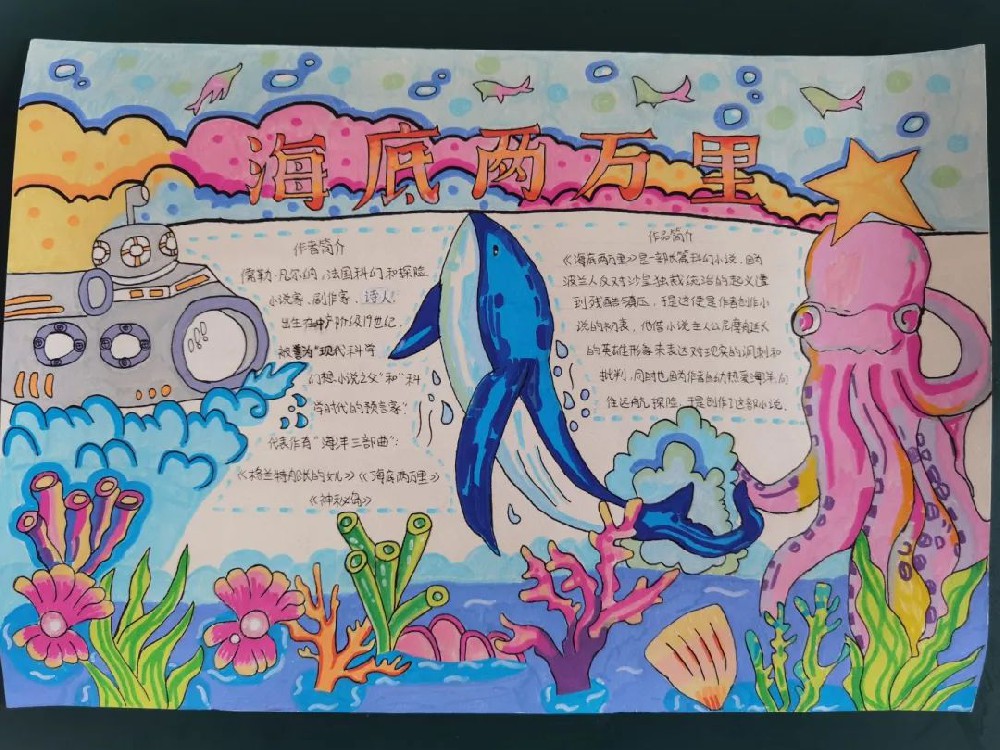 海底两万里
作者简介
儒勒·凡尔纳,法国科幻和探险
小说家、剧作家、诗人。
出生在中产阶级19世纪.
被誉为"现代科学
幻想小说之父"和"科
学时代的预言家".
代表作有"海洋三部曲":
《格兰特船长的儿女》《海底两万里》
《神秘岛》
作品简介
《海底两万里》是一部长篇科幻小说,因为
波兰人反对沙皇独裁统治的起义遭
到残酷镇压,于是这便是作者创作小
说的初衷,他借小说主人公尼摩船长
的英雄形象来表达对现实的讽刺和
批判,同时也因为作者自幼热爱海洋,向
往远航探险,于是创作了这部小说.